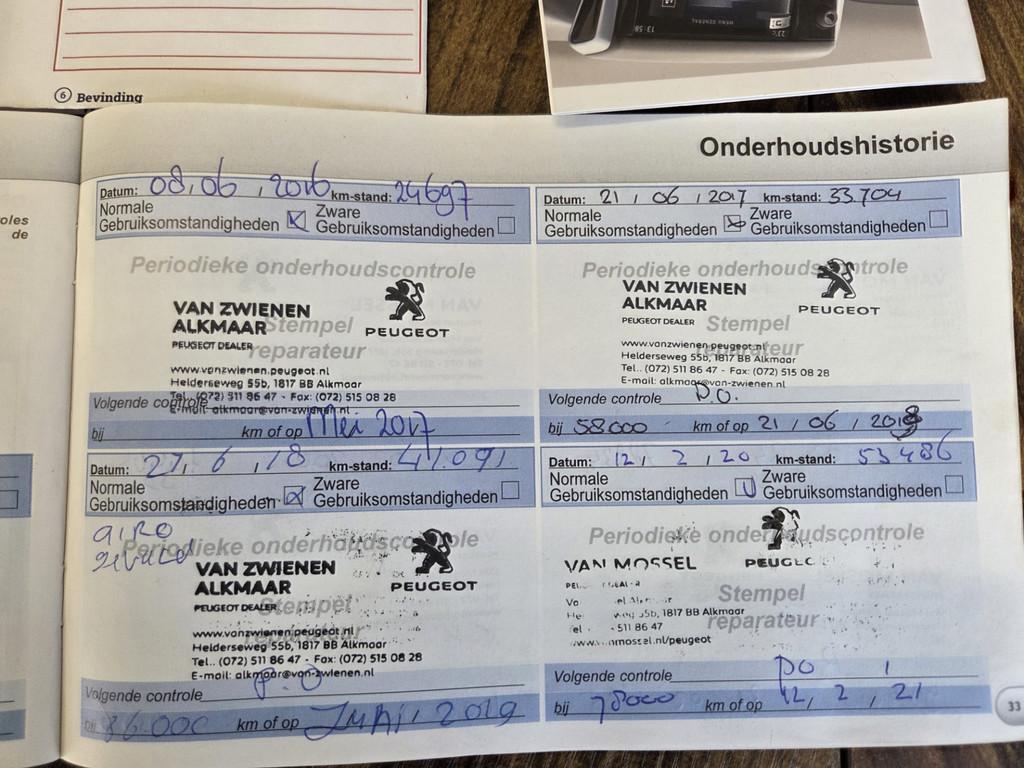 6 Bevinding
MENU GENERAL
13:58
23°C
oles
de
Onderhoudshistorie
Datum: 08, 06, 2016 km-stand: 24697
Normale Gebruiksomstandigheden Zware Gebruiksomstandigheden
Periodieke onderhoudscontrole
VAN ZWIENEN
ALKMAAR
PEUGEOT DEALER
PEUGEOT
Stempel
reparateur
www.vanzwienen.peugeot.nl
Helderseweg 55b, 1817 BB Alkmaar
Tel.. (072) 511 86 47 - Fax: (072) 515 08 28
E-mail: alkmaar@van-zwienen.nl
Volgende controle
bij km of op Mei 2017
Datum: 21 / 06 / 2017 km-stand: 33.704
Normale Gebruiksomstandigheden Zware Gebruiksomstandigheden
Periodieke onderhoudscontrole
VAN ZWIENEN
ALKMAAR
PEUGEOT DEALER
PEUGEOT
Stempel
reparateur
www.vanzwienen.peugeot.nl
Helderseweg 55b, 1817 BB Alkmaar
Tel.. (072) 511 86 47 - Fax: (072) 515 08 28
E-mail: alkmaar@van-zwienen.nl
Volgende controle P.O.
bij 58000 km of op 21 / 06 / 2018
Datum: 27, 6, 18 km-stand: 41.091
Normale Gebruiksomstandigheden Zware Gebruiksomstandigheden
Periodieke onderhoudscontrole
VAN ZWIENEN
ALKMAAR
PEUGEOT DEALER
PEUGEOT
Stempel
reparateur
www.vanzwienen.peugeot.nl
Helderseweg 55b, 1817 BB Alkmaar
Tel.. (072) 511 86 47 - Fax: (072) 515 08 28
E-mail: alkmaar@van-zwienen.nl
Volgende controle P.O
bij 86.000 km of op 2019
Datum: 12, 2, 20 km-stand: 53486
Normale Gebruiksomstandigheden Zware Gebruiksomstandigheden
Periodieke onderhoudscontrole
VAN MOSSEL
Stempel
reparateur
55b, 1817 BB Alkmaar
511 86 47
mossel.nl/peugeot
Volgende controle PO
bij 78000 km of op 12, 2, 21
33